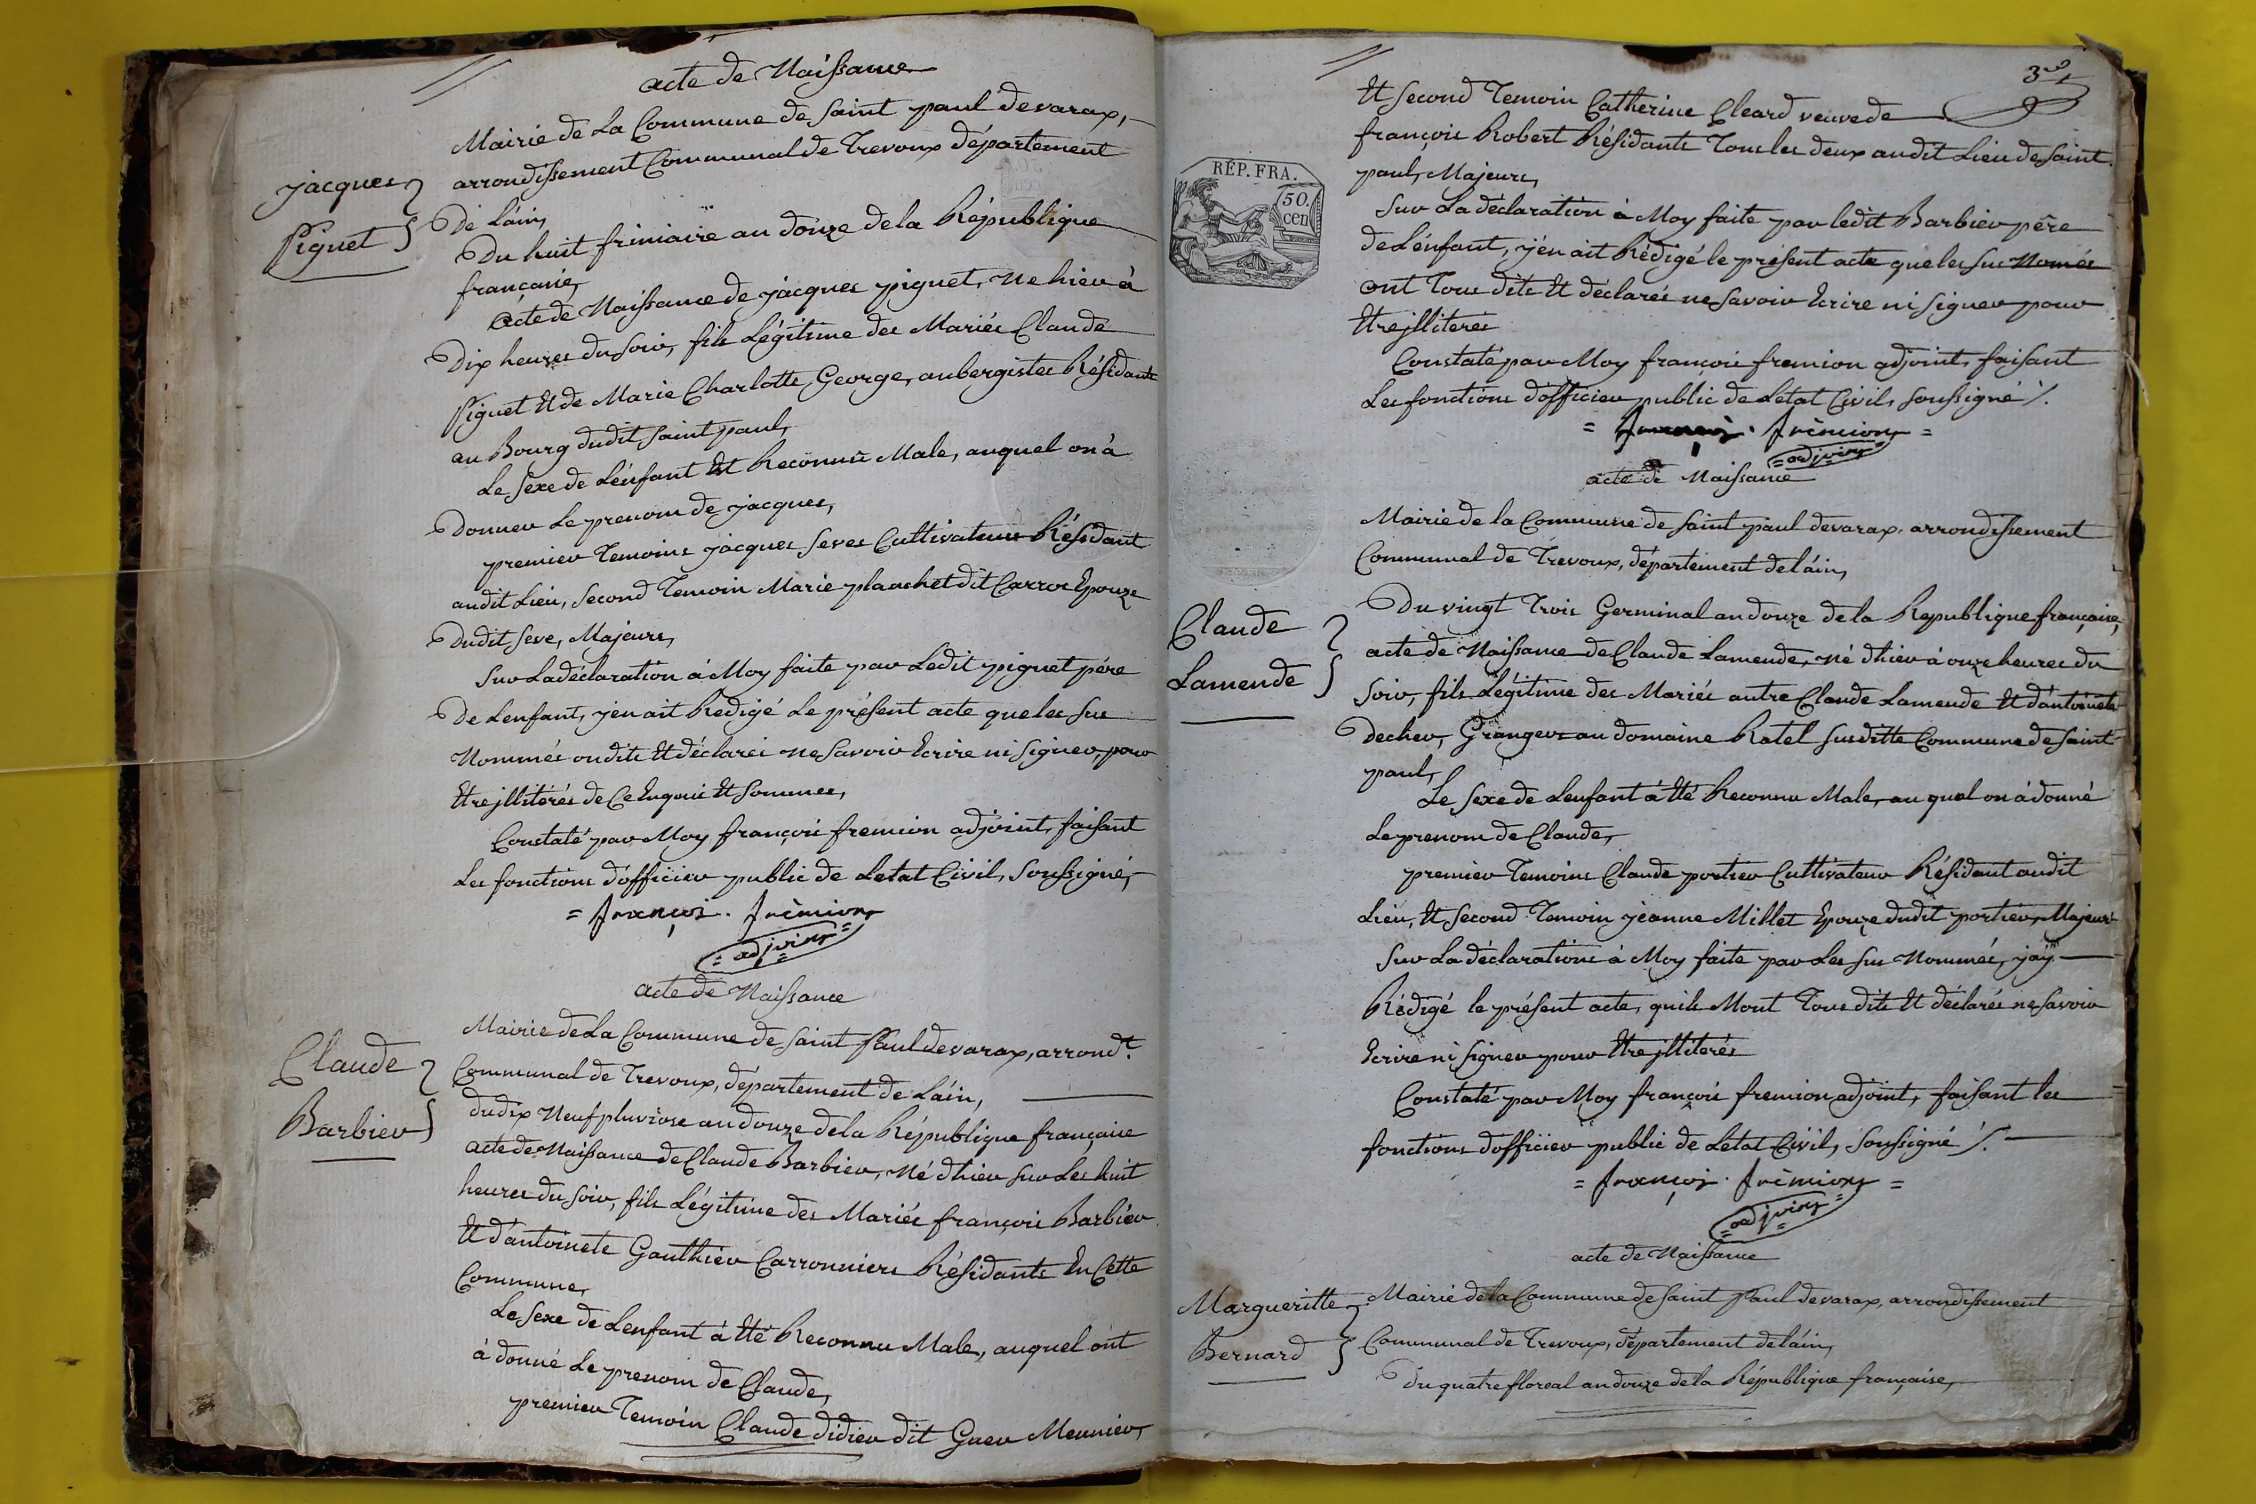 acte de Naissance
Mairie de La Commune de Saint paul devarax,
arrondissement Communal de Trevoux département
De Láin,
jacques
Piguet
Du huit frimaire an douze de la République
françaiře,
acte de Naissance de jacques piguet, Ne hier à
Dix heures du Soir, fils Légitime des Mariés Claude
Piguet Et de Marie Charlotte George, aubergistes Résidants
au Bourg dudit Saint paul,
Le Sexe de Lénfant Est Reconnu Male, auquel on à
Donner Le prenom de jacques,
premier Temoins jacques Seves Cultivateur Résidant
audit Lieu, Second Temoin Marie planchet dit Carros Epouze
Dudit Seve, Majeurs,
Sur La déclaration à Moy faite par Ledit piguet pére
De Lenfant, jén ait Redigé Le présent acte que les Sus
Nommés on dits Et déclarés ne Savoir Ecrire ni Signer, pour
Etre jlliterés de Ce Enquis Et Sommes,
Constaté par Moy françois fremion adjoint, faisant
Les fonctions dófficier public de Letat Civil, Soussigné,
= françois. frèmion
= adjoint =
acte de Naissance
Claude
Barbier
Mairie de La Commune de Saint Paul devarax, arrondt.
Communal de Trevoux, département de Láin,
du dix Neuf pluviose an douze dela République française
acte de Naissance de Claude Barbier, Né dhier Sur Les huit
heures du Soir, fils Légitime des Mariés françois Barbier
Et dántoinete Gauthier Carronniers Résidants En Cette
Commune,
Le Sexe de Lenfant à Eté Reconnu Male, auquel ont
à donné Le prenom de Claude,
premier Temoin Claude didier dit Meunier,
3
Et Second Temoin Catherine Cleard veuve de
françois Robert Résidants Tous les deux audit Lieu de Saint
paul, Majeurs,
RÉP. FRA.
50.
cen
Sur La déclaration à Moy faite par ledit Barbier père
de Lénfant, jén ait Rédigé le présent acte que les Sus Només
ont Tous dits Et déclarés ne Savoir Ecrire ni Signer pour
Etre jlliteres
Constaté par Moy françois fremion adjoint, faisant
Les fonctions dófficier public de Letat Civil, Soussigné ./.
= françois. frèmion =
= adjoint
acte de Naissance
Mairie de la Commune de Saint paul devarax, arrondissement
Communal de Trevoux, département de láin,
Claude
Lamende
Du vingt Trois Germinal an douze de la République française,
acte de Naissance de Claude Lamende, né dhier à onze heures du
Soir, fils Légitime des Mariés autre Claude Lamende Et dántoinete
Decher, Grangers au domaine Ratel Susditte Commune de Saint
paul,
Le Sexe de Lenfant à Eté Reconnu Male, auquel on à donné
Le prenom de Claude,
premier Temoins Claude portier Cultivateur Résidant audit
Lieu, Et Second Temoin jeanne Millet Epouze dudit portier, Majeurs
Sur La déclarations à Moy faite par Les Sus Nommés, jáy
Rédigé le présent acte, quils Mont Tous dits Et déclarés ne Savoir
Ecrire ni Signer pour Etre jlliterés
Constaté par Moy françois fremion adjoint, faisant les
fonctions dófficier public de Létat Civil, Soussigné ./.
= françois. frèmion =
= adjoint =
acte de Naissance
Margueritte
Bernard
Mairie de la Commune de Saint Paul devarax, arrondissement
Communal de Trevoux, département de láin,
Du quatre floreal an douze de la République française,